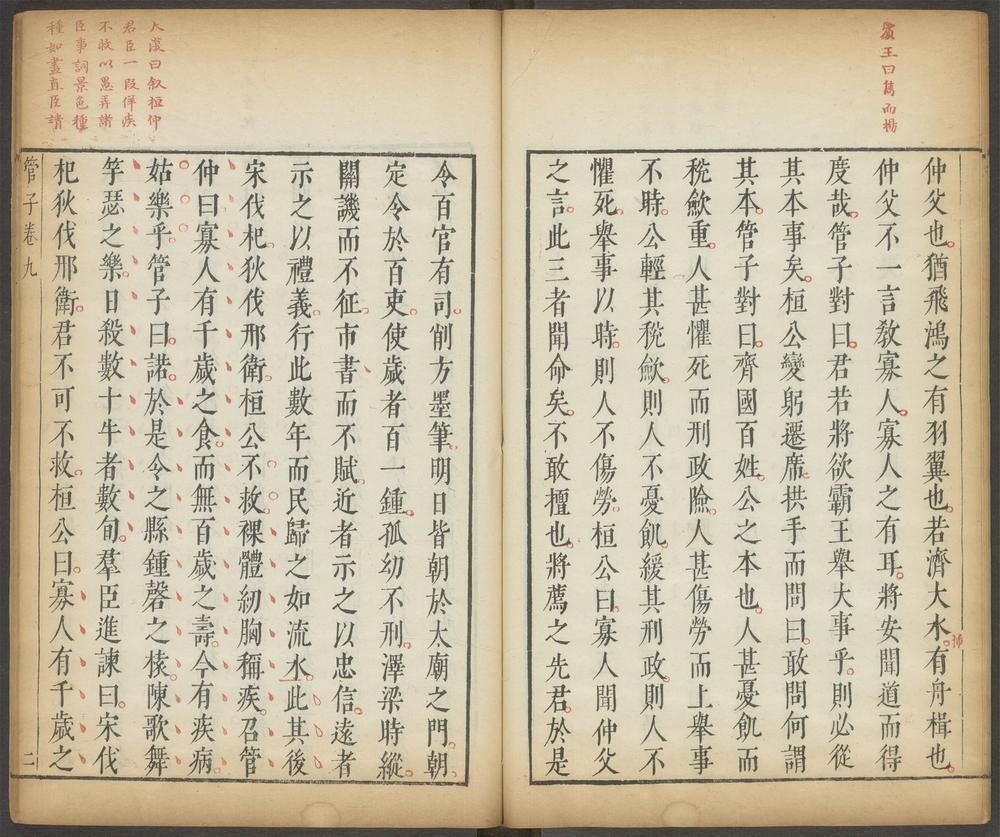 賓王曰雋而暢
仲父也猶飛鴻之有羽翼也若濟大水有舟楫也
仲父不一言敎寡人寡人之有耳將安聞道而得
度哉管子對曰君若將欲霸王舉大事乎則必從
其本事矣桓公變躬遷席拱手而問曰敢問何謂
其本管子對曰齊國百姓公之本也人甚憂飢而
稅斂重人甚懼死而刑政險人甚傷勞而上舉事
不時公輕其稅斂則人不憂飢緩其刑政則人不
懼死舉事以時則人不傷勞桓公曰寡人聞仲父
之言此三者聞命矣不敢擅也將薦之先君於是
大復曰叙桓仲
君臣一段佯疾
不救以愚弄諸
臣事詞景色種
種如畫直臣請
令百官有司削方墨筆明日皆朝於太廟之門朝
定令於百吏使歲者百一鍾孤幼不刑澤梁時縱
關譏而不征市書而不賦近者示之以忠信遠者
示之以禮義行此數年而民歸之如流水此其後
宋伐杞狄伐邢衛桓公不救裸體紉胸稱疾召管
仲曰寡人有千歲之食而無百歲之壽今有疾病
姑樂乎管子曰諾於是令之縣鍾磬之榱陳歌舞
竽瑟之樂日殺數十牛者數旬羣臣進諫曰宋伐
杞狄伐邢衛君不可不救桓公曰寡人有千歲之
管子卷九
二